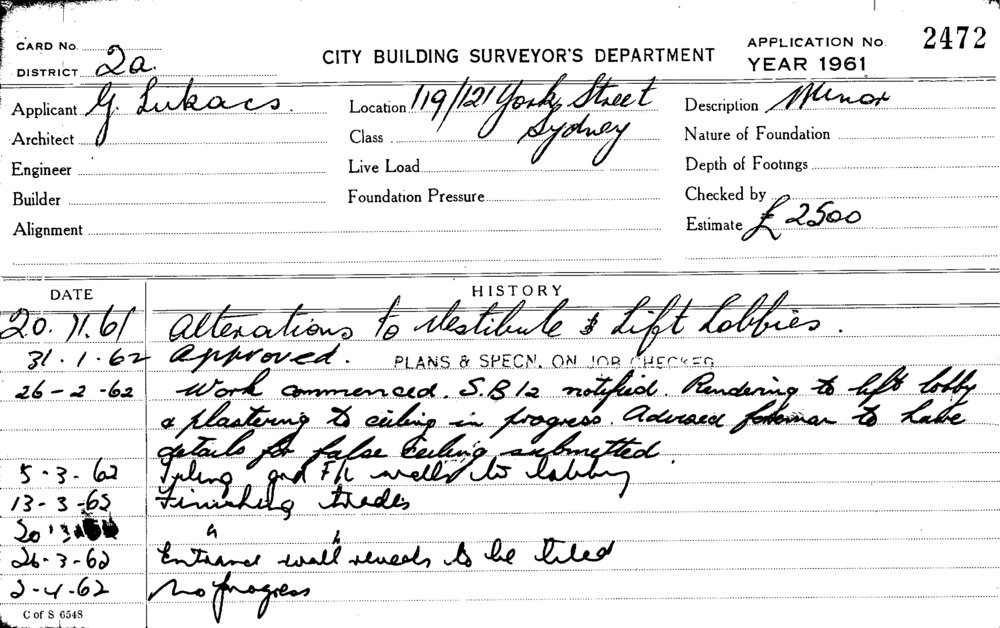 CARD No.
DISTRICT 2a.
CITY BUILDING SURVEYOR'S DEPARTMENT
APPLICATION No. 2472
YEAR 1961
Applicant G. Lukacs.
Location 119/121 York Street
Sydney
Description Minor
Architect
Class
Nature of Foundation
Engineer
Live Load
Depth of Footings
Builder
Foundation Pressure
Checked by
Alignment
Estimate £ 2500
DATE HISTORY
20.11.61 Alterations to Vestibule & Lift Lobbies.
31.1.62 Approved. PLANS & SPECN. ON JOB CHECKED
26-2-62 Work commenced. S.B 12 notified. Rendering to lift lobby
& plastering to ceiling in progress. Advised foreman to have
details for false ceiling submitted.
5-3-62 Tiling walls to lobby
13-3-62 Finishing trades
20 3 " "
26-3-62 Entrance wall reveals to be tiled
2-4-62 No progress
C of S 6548